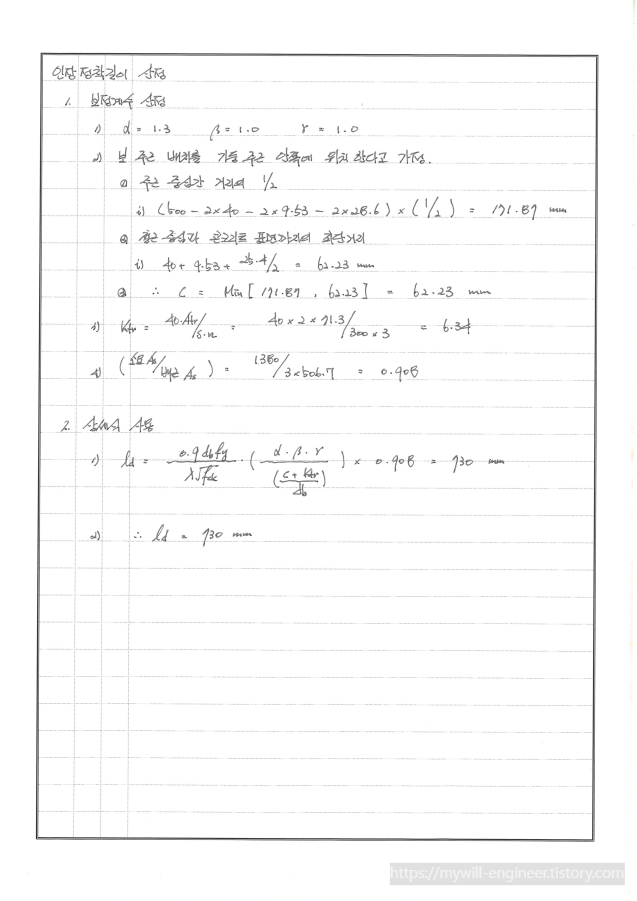 인장 정착길이 산정
1. 보정계수 산정
1) α = 1.3 β = 1.0 γ = 1.0
2) 보 주근 배치를 기둥 주근 안쪽에 위치 한다고 가정.
① 주근 중심간 거리의 1/2
i) (500 - 2×40 - 2×9.53 - 2×28.6) × (1/2) = 171.87 mm
② 철근 중심과 콘크리트 표면까지의 최단거리
i) 40 + 9.53 + 25.4/2 = 62.23 mm
③ ∴ C = Min [ 171.87 , 62.23 ] = 62.23 mm
3) Ktr = 40·Atr/s·n = 40 × 2 × 71.3/300 × 3 = 6.34
4) (소요 As/배근 As) = 1380/3×506.7 = 0.908
2. 상세식 사용
1) ld = 0.9 db fy/λ√fck · (α·β·γ/((c + Ktr)/db)) × 0.908 = 730 mm
2) ∴ ld = 730 mm
https://mywill-engineer.tistory.com